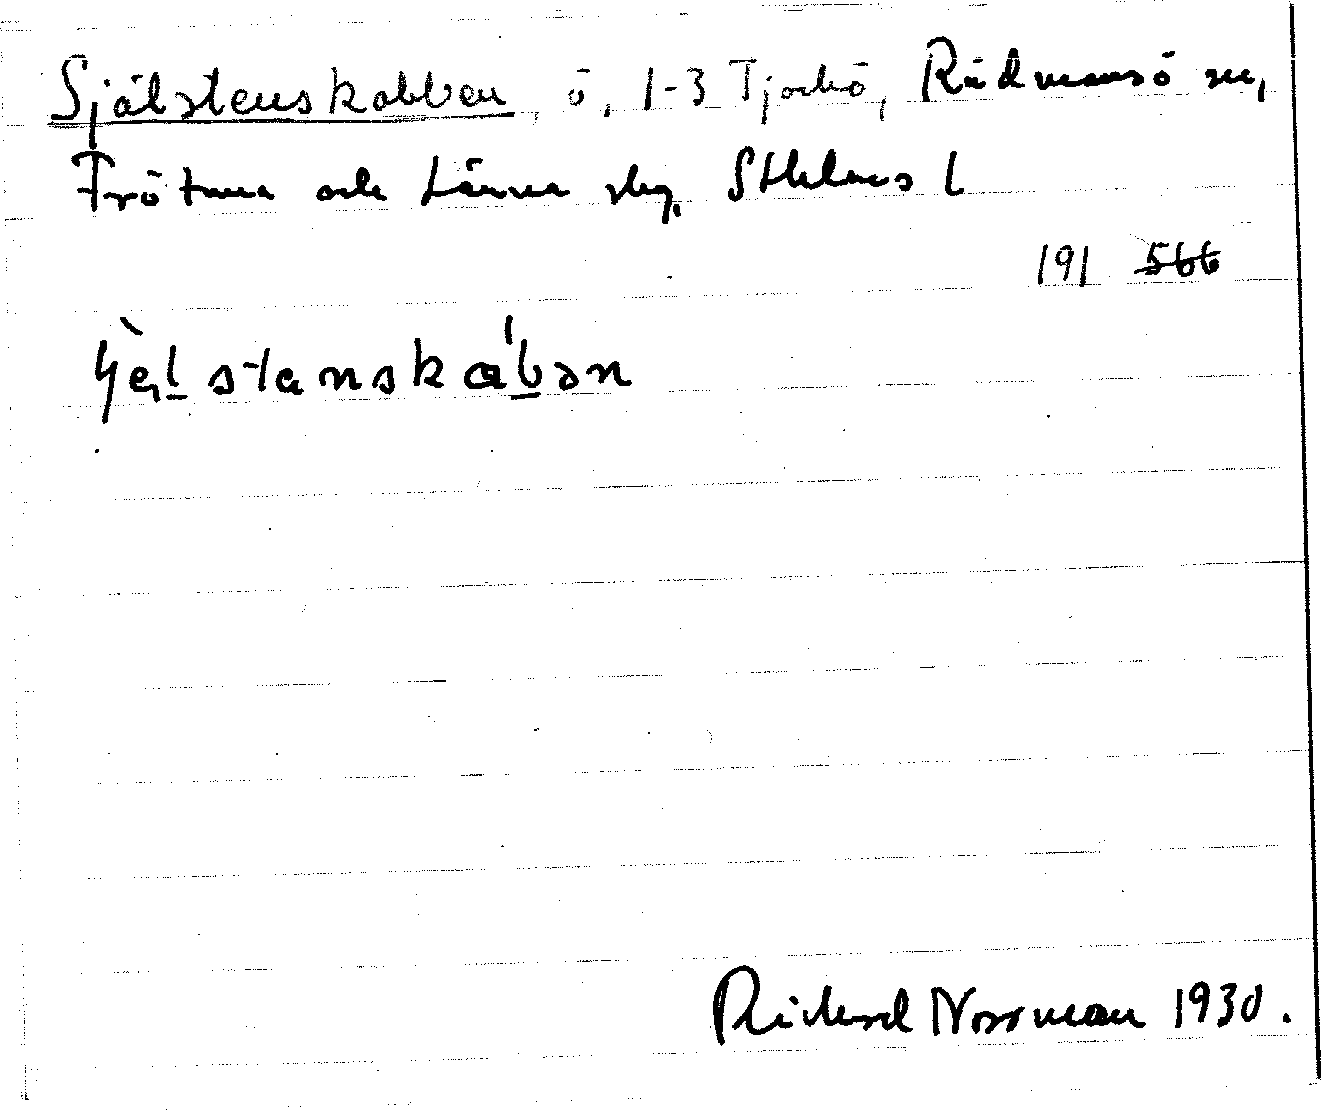 Själstenskobben, ö, 1-3 Tjockö, Rådmansö sn,
Frötuna och Länna skg. Sthlms l
191 566
stenskabən
Rickard Norrman 1930.